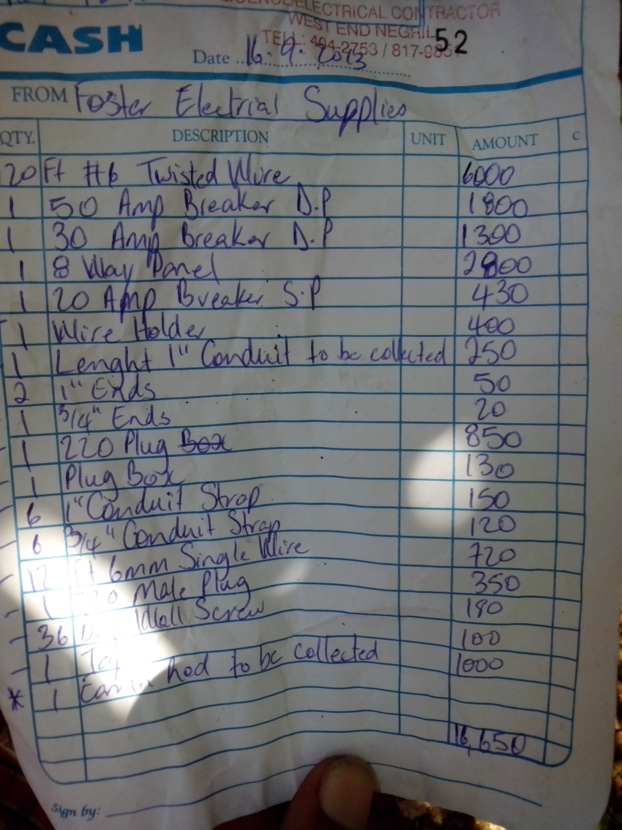 ELECTRICAL CONTRACTOR
WEST END NEGRIL
CASH
52
Date 16.9.2013
FROM Foster Electrial Supplies
QTY. DESCRIPTION UNIT AMOUNT C
20 Ft #6 Twisted Wire 6000
1 50 Amp Breaker D.P 1800
1 30 Amp Breaker D.P 1300
1 8 Way Panel 2800
1 20 Amp Breaker S.P 430
1 Wire Holder 400
1 Lenght 1" Conduit to be collected 250
2 1" Ends 50
1 3/4" Ends 20
1 220 Plug Box 850
1 Plug Box 130
6 1" Conduit Strap 150
6 3/4" Conduit Strap 120
12 Ft 6mm Single Wire 720
1 Male Plug 350
36 Wall Screw 180
1 100
* 1 to be collected 1000
16,650
Sign by: